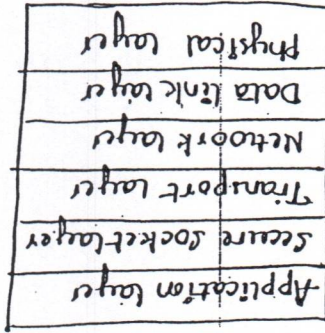 Application layer
Secure Socket layer
Transport layer
Network layer
Data link layer
Physical layer